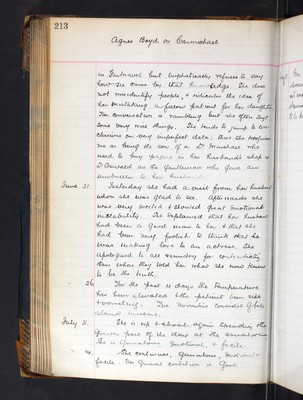 213
Agnes Boyd or Carmichael
in Gartnavel but emphatically refuses to say
how she came by that knowledge. She does
not misidentify people, & ridicules the idea of
her mistaking a fellow patient for her daughter.
Her conversation is rambling but she often says
some very wise things. She tends to jump to con-
clusions on very imperfect data; thus she recognises
me as being the son of a Dr. Marshall who
used to buy papers in her husband's shop &
Dr. as the gentleman who gave an
umbrella to her husband.
June. 21. Yesterday she had a visit from her husband
whom she was glad to see. Afterwards she
was very excited & showed great emotional
instability. She explained that her husband
had been a good man to her & that she
had been very foolish to think that he
was making love to an actress. She
apologised to all & sundry for contradicting
them when they told her what she now knows
to be the truth.
26 For the past 10 days the temperature
has been elevated & the patient has been sick
& vomiting. The vomitus consists of
July. 5. She is up & about again spending the
greater part of the day at the
She is garrulous, emotional, & facile.
She continues, garrulous, &
facile. Her general condition is good.